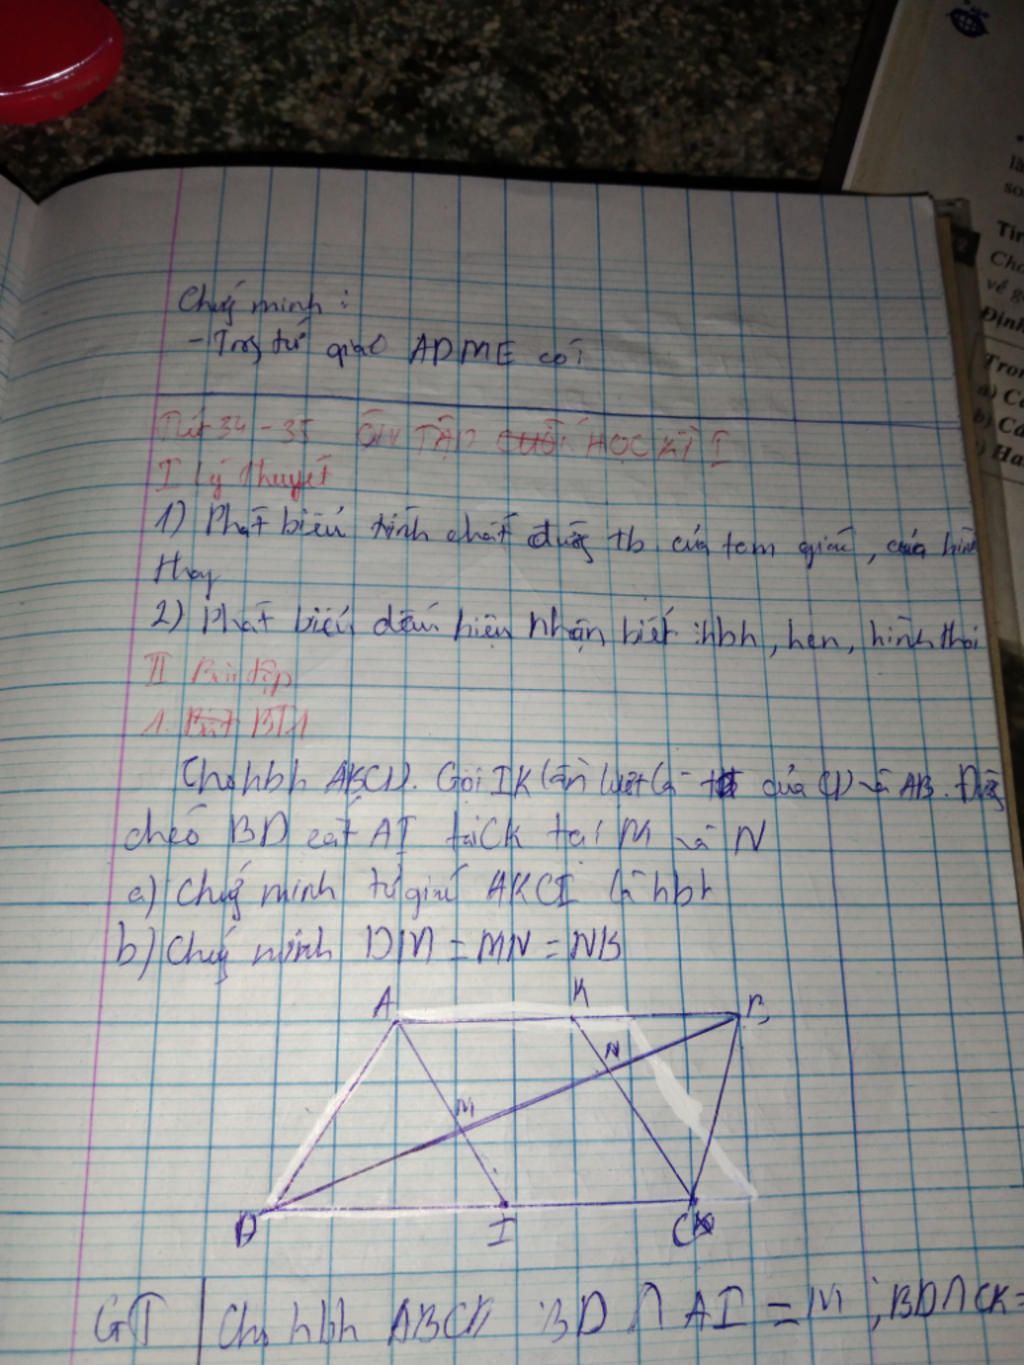 Chứng minh:
- Trong tứ giác ADME có:
Tiết 34 - 35 ÔN TẬP CUỐI HỌC KÌ I
I Lý thuyết
1) Phát biểu tính chất đường tb của tam giác, của hình
thang
2) Phát biểu dấu hiệu nhận biết: hbh, hcn, hình thoi
II Bài tập
1. BT1
Cho hbh ABCD. Gọi I K lần lượt là của CD và AB. Đường
chéo BD cắt AI tại CK tại M và N
a) Chứng minh tứ giác AKCI là hbh
b) Chứng minh DM = MN = NB
A K B
N
M
D I C
GT Cho hbh ABCD BD ∩ AI = M ; BD ∩ CK =
là
so
Tín
Cho
vẽ
Định
Tron
a) C
b) Cá
Ha